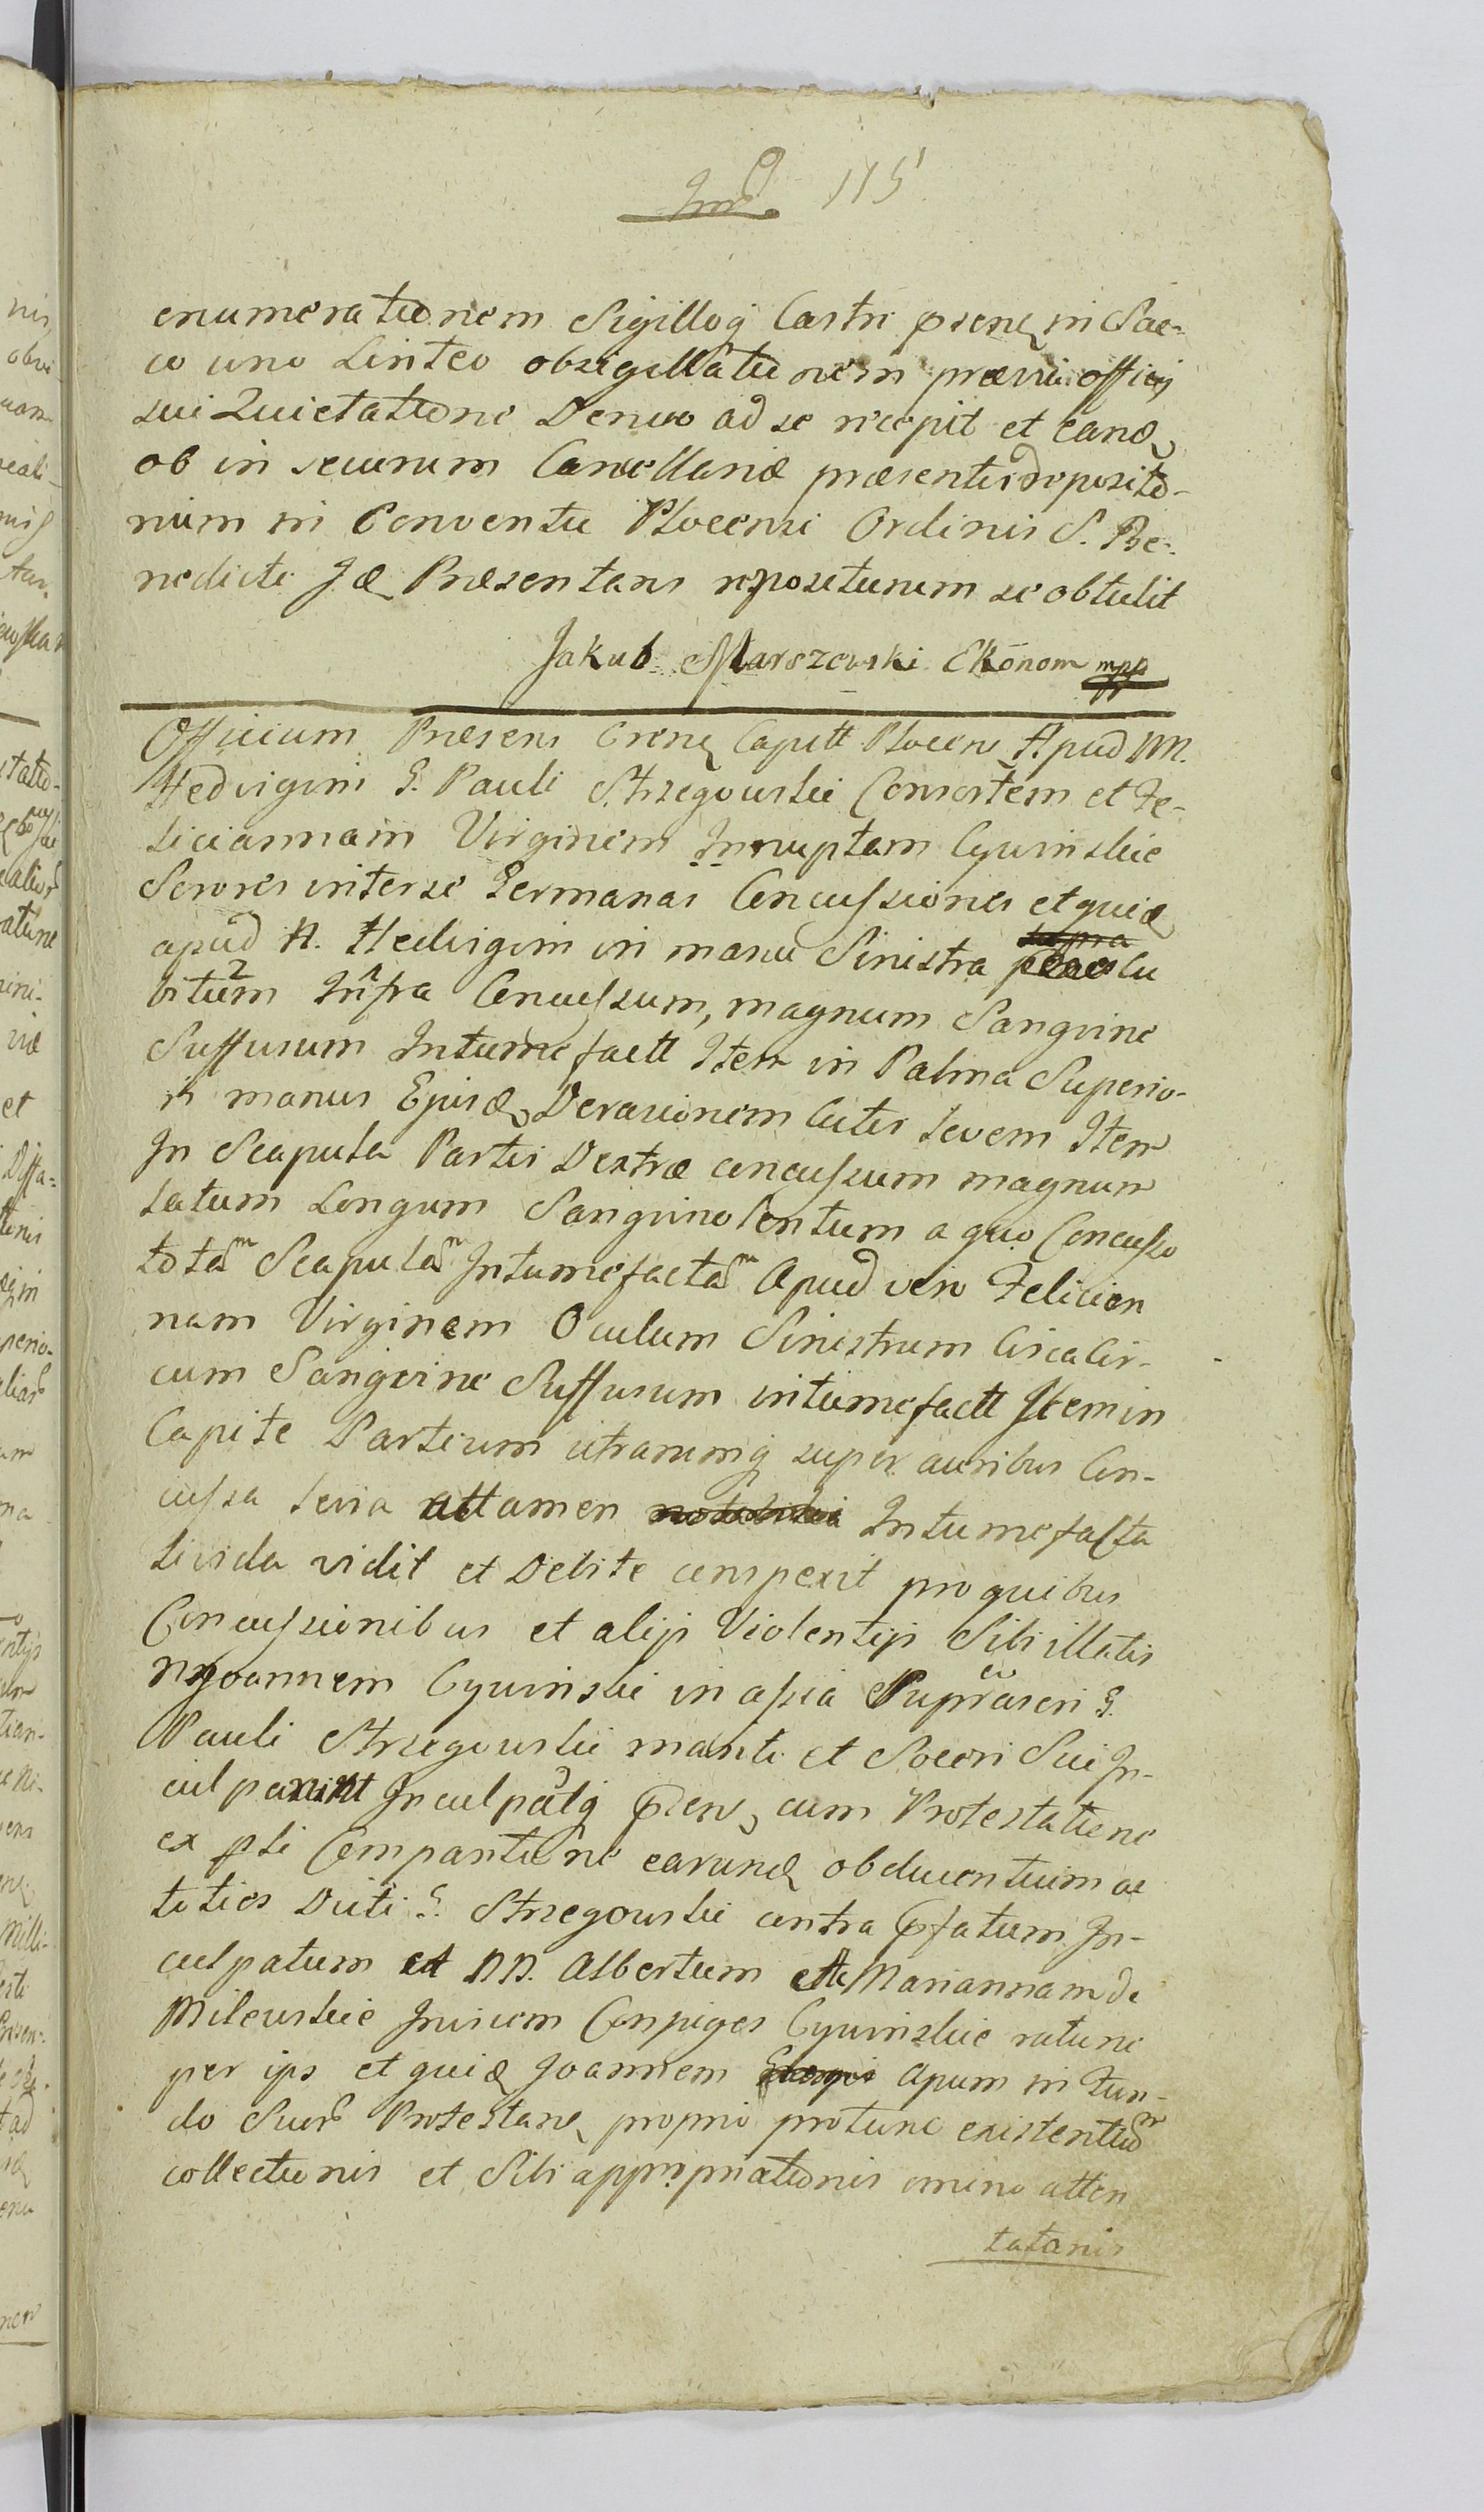 115
enumerationem Sigilloq Castri psenę in Sac-
co uno Linteo obsigillationem prævia officij
sui Quietatione Denuo ad se recepit et eand
ob in securum Cancellariæ præsentis deposito-
rium in Conventu Plocensi Ordinis S. Be-
nedicti Id Præsentans repositurum se obtulit
Jakub Marszewski Ekonom mpp
Officium Præsens Crenę Capitt Plocens Apud NN.
Hedvigim G. Pauli Strzegowski Consortem et Fe-
liciannam Virginem Innuptam Cywinskie
Sorores inter se Germanas Concussiones et quid
apud N. Hedvigim in manu Sinistra supra cu
bitum Infra Concussum, magnum Sanguine
Suffusum Intumefactt Item in Palma Superio-
ri manus Ejusd Derasionem Cutis levem Item
In Scapula Partis Dextræ concussum magnum
Latum Longum Sanguinolentum a quo Concusso
totam Scapulam Intumefactam Apud vero Felician
nam Virginem Oculum Sinistrum Circa Cir-
cum Sanguine Suffusum intumefactt Item in
Capite Partium utrarumq super auribus Con-
cussa levia attamen Intumefacta
Livida vidit et Debite conspexit pro quibus
Concussionibus et alijs Violentijs Sibi illatis
N Joannem Cywinski in assia Supra seri G.
Pauli Strzegowski mariti et Soceri Sui In-
culparunt Inculpatq psens, cum Protestatione
ex psti Comparitione earund obducentium ac
toties Dicti G. Strzegowski contra psfatum In-
culpatum et NN. Albertum et Mariannam de
Milewskie Invicem Conjuges Cywinskie ratione
per ips et quid Joannem apum in Fun-
do Suor Protestanę proprio protunc existentium
collectionis et Sibi appropriationis omino atten
tatanis